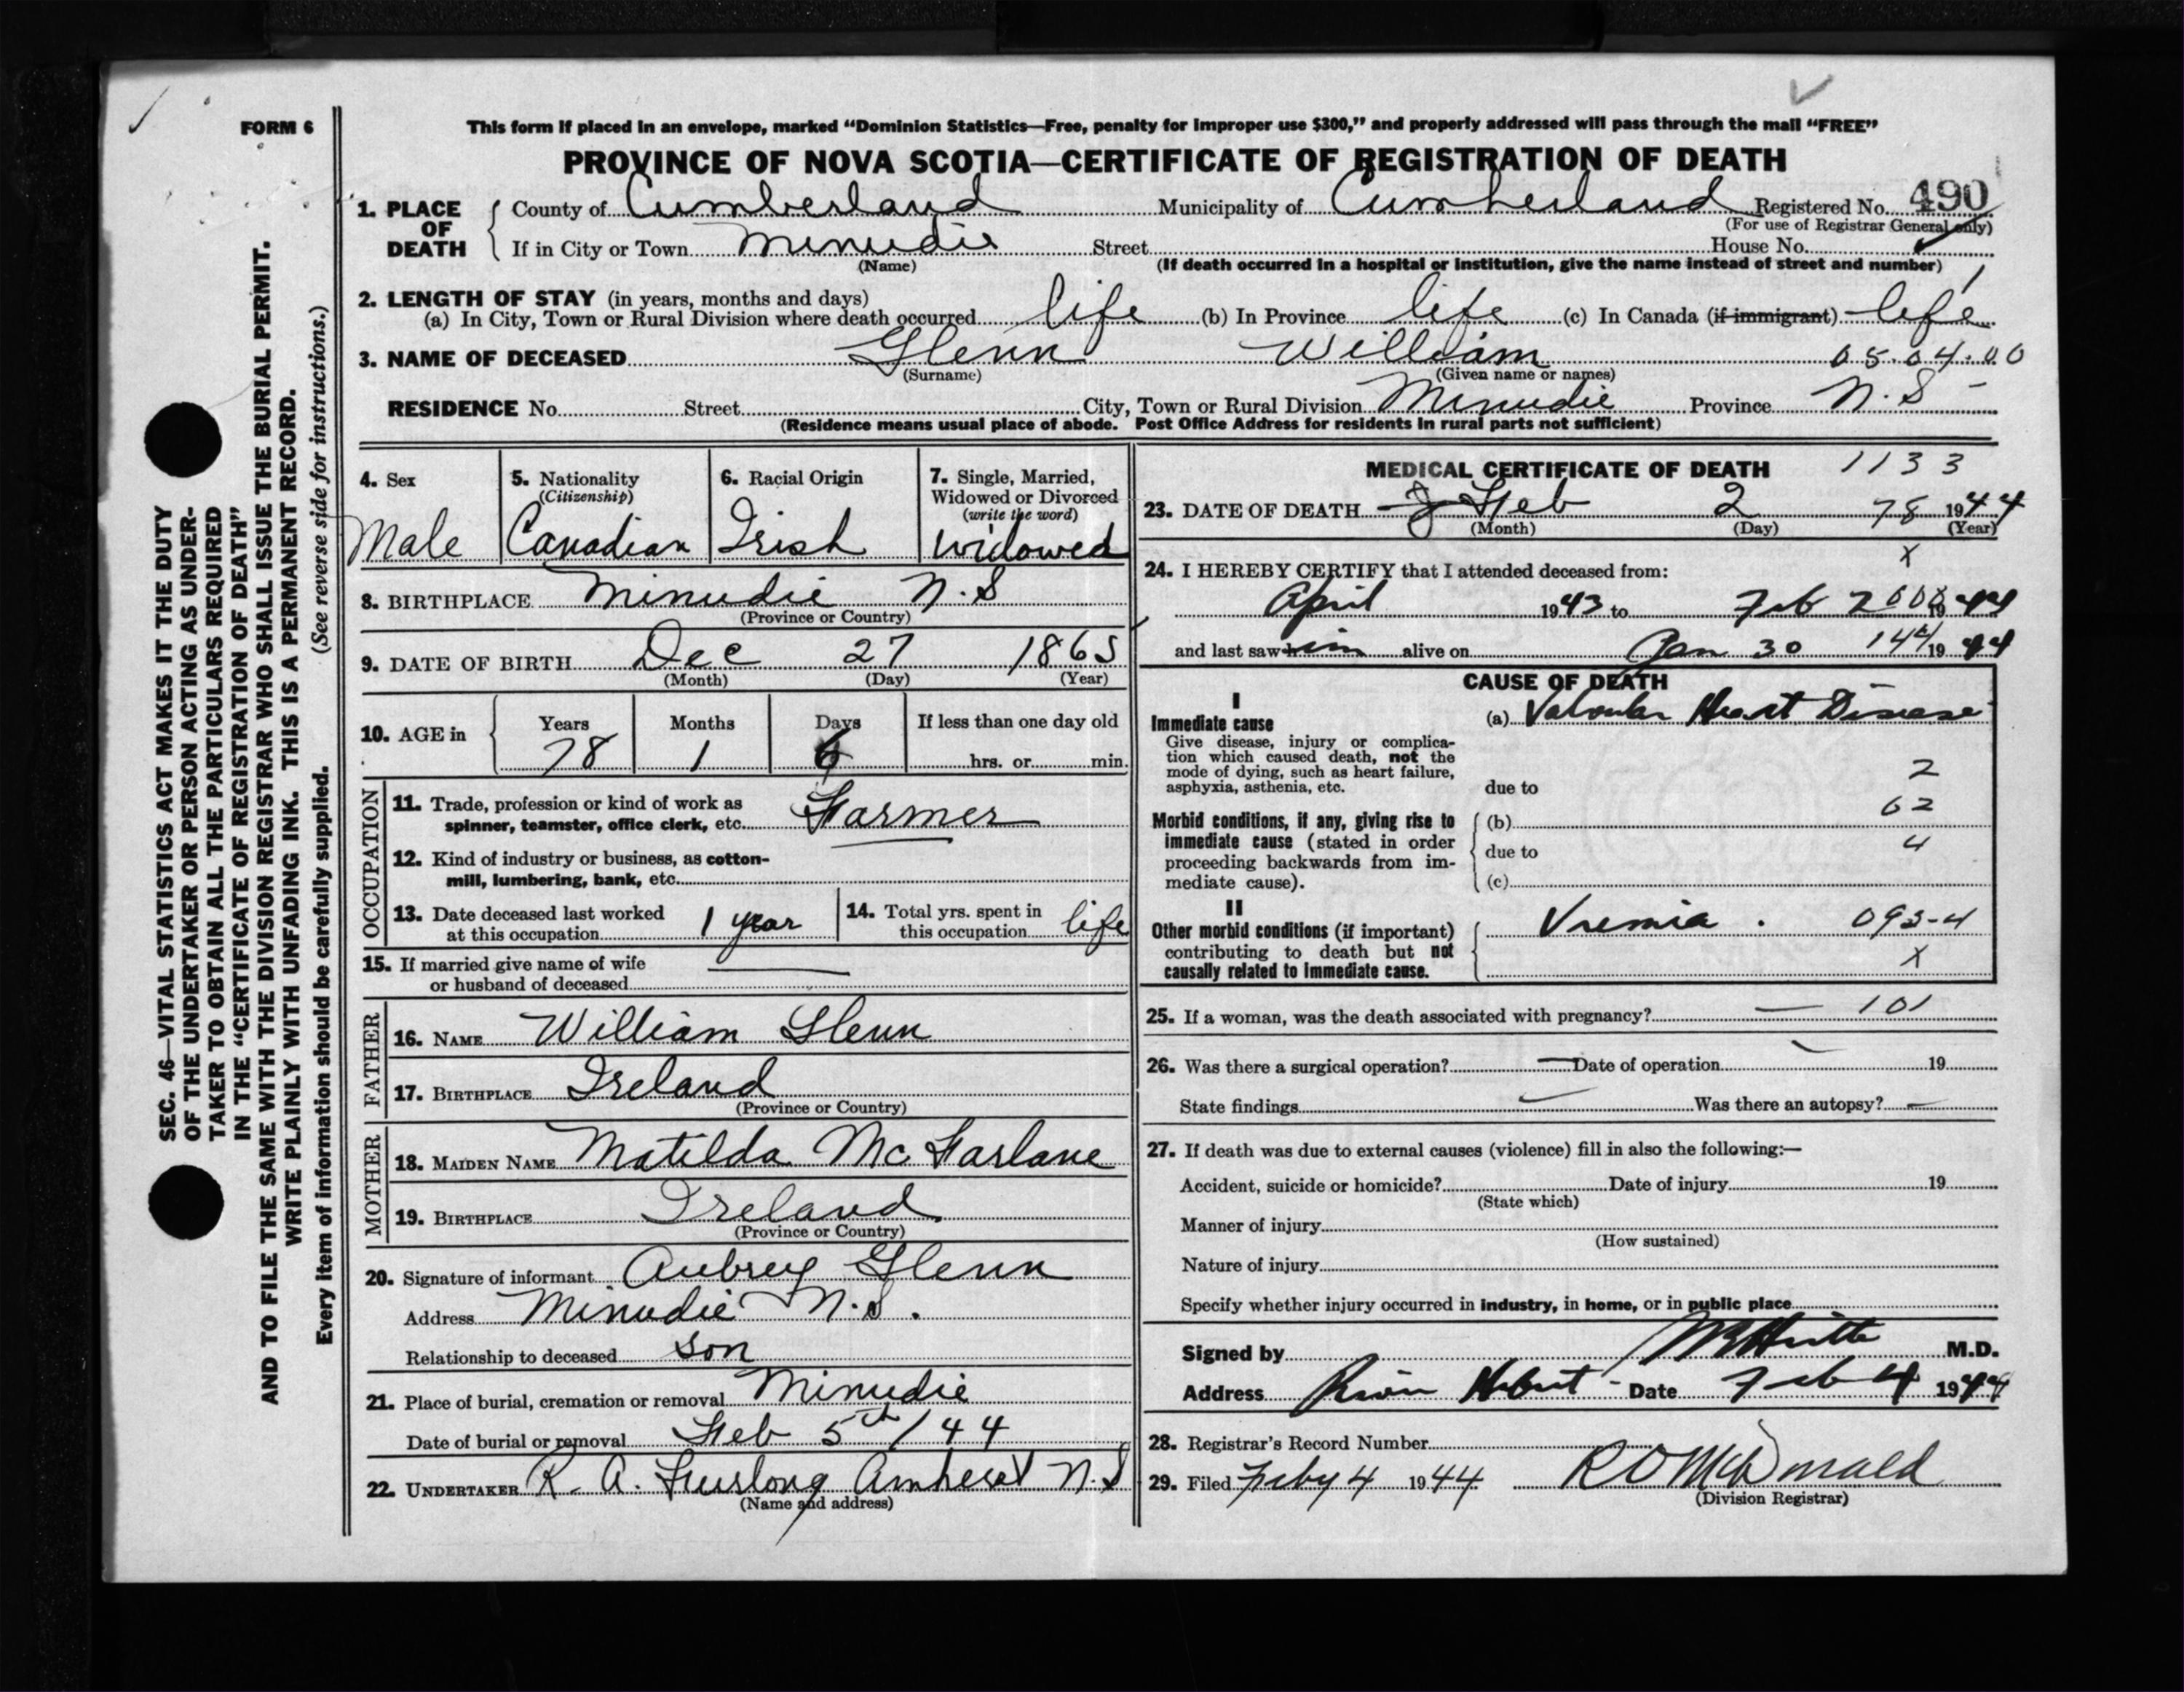 FORM 6
This form if placed in an envelope, marked “Dominion Statistics—Free, penalty for improper use $300,” and properly addressed will pass through the mail “FREE”
PROVINCE OF NOVA SCOTIA—CERTIFICATE OF REGISTRATION OF DEATH
1. PLACE OF DEATH { County of Cumberland Municipality of Cumberland Registered No. 490
(For use of Registrar General only)
If in City or Town Minudie Street House No.
(Name) (If death occurred in a hospital or institution, give the name instead of street and number)
2. LENGTH OF STAY (in years, months and days)
(a) In City, Town or Rural Division where death occurred life (b) In Province life (c) In Canada (if immigrant) life
3. NAME OF DECEASED Glenn William 05.04.00
(Surname) (Given name or names)
RESIDENCE No. Street City, Town or Rural Division Minudie Province N.S
(Residence means usual place of abode. Post Office Address for residents in rural parts not sufficient)
4. Sex Male
5. Nationality (Citizenship) Canadian
6. Racial Origin Irish
7. Single, Married, Widowed or Divorced (write the word) Widowed
8. BIRTHPLACE Minudie N.S
(Province or Country)
9. DATE OF BIRTH Dec 27 1865
(Month) (Day) (Year)
10. AGE in { Years 78 Months 1 Days 6 If less than one day old
hrs. or min.
OCCUPATION
11. Trade, profession or kind of work as
spinner, teamster, office clerk, etc. Farmer
12. Kind of industry or business, as cotton-
mill, lumbering, bank, etc.
13. Date deceased last worked
at this occupation 1 year
14. Total yrs. spent in
this occupation life
15. If married give name of wife
or husband of deceased
FATHER
16. NAME William Glenn
17. BIRTHPLACE Ireland
(Province or Country)
MOTHER
18. MAIDEN NAME Matilda McFarlane
19. BIRTHPLACE Ireland
(Province or Country)
20. Signature of informant Aubrey Glenn
Address Minudie N.S.
Relationship to deceased son
21. Place of burial, cremation or removal Minudie
Date of burial or removal Feb 5th/44
22. UNDERTAKER R. A. Furlong Amherst N.S
(Name and address)
MEDICAL CERTIFICATE OF DEATH 1133
23. DATE OF DEATH Feb 2 78 1944
(Month) (Day) (Year)
x
24. I HEREBY CERTIFY that I attended deceased from:
April 1943 to Feb 2 1944
and last saw him alive on Jan 30 1944
CAUSE OF DEATH
I
Immediate cause (a) Valvular Heart Disease
Give disease, injury or complica-
tion which caused death, not the
mode of dying, such as heart failure,
asphyxia, asthenia, etc. due to 2
62
Morbid conditions, if any, giving rise to (b)
immediate cause (stated in order due to 4
proceeding backwards from im-
mediate cause). (c)
II
Other morbid conditions (if important) Uremia. 093-4
contributing to death but not
causally related to immediate cause. x
25. If a woman, was the death associated with pregnancy? — 101
26. Was there a surgical operation? — Date of operation 19
State findings Was there an autopsy? —
27. If death was due to external causes (violence) fill in also the following:—
Accident, suicide or homicide? Date of injury 19
(State which)
Manner of injury
(How sustained)
Nature of injury
Specify whether injury occurred in industry, in home, or in public place
Signed by M.D.
Address River Hebert - Date Feb 4 1944
28. Registrar's Record Number
29. Filed Feby 4 1944 R O McDonald
(Division Registrar)
SEC. 46—VITAL STATISTICS ACT MAKES IT THE DUTY
OF THE UNDERTAKER OR PERSON ACTING AS UNDER-
TAKER TO OBTAIN ALL THE PARTICULARS REQUIRED
IN THE “CERTIFICATE OF REGISTRATION OF DEATH”
AND TO FILE THE SAME WITH THE DIVISION REGISTRAR WHO SHALL ISSUE THE BURIAL PERMIT.
WRITE PLAINLY WITH UNFADING INK. THIS IS A PERMANENT RECORD.
Every item of information should be carefully supplied. (See reverse side for instructions.)